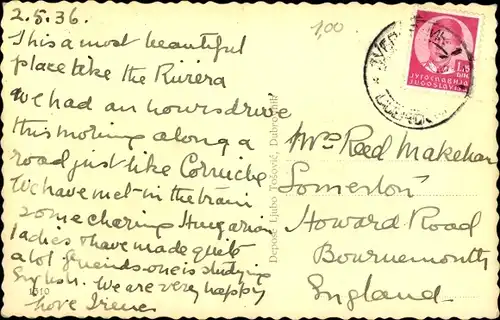 2.5.36.
This a most beautiful
place like the Riviera
we had an hours drive
this morning along a
road just like Corniche
We have met in the train
some charing Hungarian
ladies & have made quite
a lot friends one is studying
English. We are very happy
Love Irene
1310
1,00
Deposé Ljubo Tošović, Dubrovnik
ЈУГОСЛАВИЈА
JUGOSLAVIJA
Mrs Reed Makeham
Somerton
Howard Road
Bournemouth
England